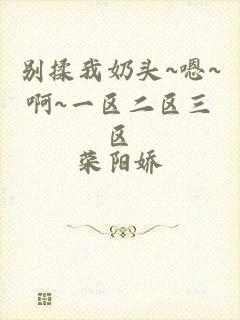 别揉我奶头~嗯~
啊~一区二区三
区
荣阳娇